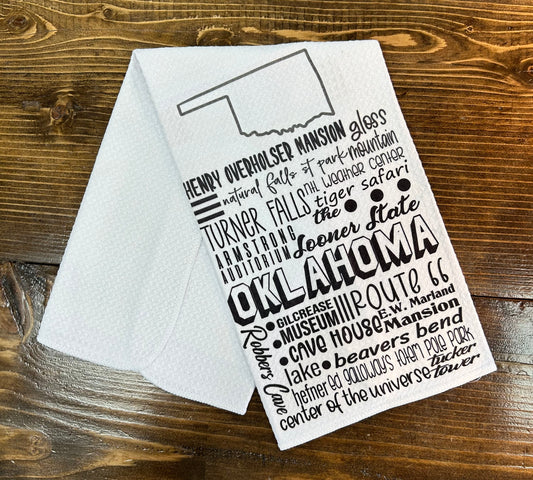 HENRY OVERHOLSER MANSION gloss
natural falls st park mountain
THE WEATHER CENTER
TURNER FALLS tiger safari
the
ARMSTRONG AUDITORIUM Sooner State
OKLAHOMA
GILCREASE MUSEUM ROUTE 66
CAVE HOUSE E.W. Marland Mansion
Robbers Cave
lake beavers bend
hefner ed galloways totem pole park
tucker tower
center of the universe